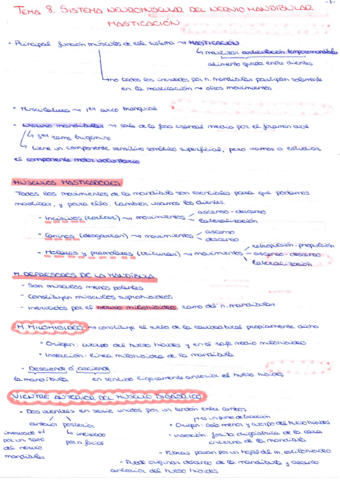 TEMA 8. SISTEMA NEUROMUSCULAR DEL NERVIO MANDIBULAR
MASTICACIÓN
-1-
· Principal función músculos de este sistema → MASTICACIÓN
↳ movilizar articulación temporomandibular
alimento quede entre dientes
→ no todos los inervados por n. mandibular participan solamente
en la masticación → otros movimientos
· Musculatura → 1er arco branquial
· Nervio mandibular → sale de la fosa craneal media por el foramen oval
↳ 3ra rama trigémino
↳ tiene un componente sensitivo somático superficial, pero vamos a estudiar
el componente motor voluntario
MÚSCULOS MASTICADORES
Todos los movimientos de la mandíbula son esenciales para que podamos
masticar, y para ello, también usamos los dientes.
- Incisivos (cortar) → movimientos ascenso-descenso
lateralización
- Caninos (desgarrar) → movimientos ascenso
descenso
- Molares y premolares (triturar) → movimientos retropulsión-propulsión
ascenso-descenso
lateralización
M. DEPRESORES DE LA MANDÍBULA
- Son músculos menos potentes
- Constituyen músculos suprahioideos
- inervados por el nervio milohioideo, rama del n. mandibular
M. MILOHIOIDEO → constituye el suelo de la cavidad bucal propiamente dicha
· Origen: cuerpo del hueso hioides y en el rafe medio milohioideo
· Inserción: línea milohioidea de la mandíbula
- Desciende ó asciende
la mandíbula
en sentido ligeramente anterior el hueso hioides
VIENTRE ANTERIOR DEL MÚSCULO DIGÁSTRICO
- Dos vientres en serie unidos por un tendón entre ambos
anterior posterior
inervado
por un ramo
del nervio
mandibular
↳ inervado
por n. facial
· Origen: asta menor y cuerpo del hueso hioides
· inserción: fosita digástrica de la cara
interna de la mandíbula
- Puede originar descenso de la mandíbula y ascenso
anterior del hueso hioides